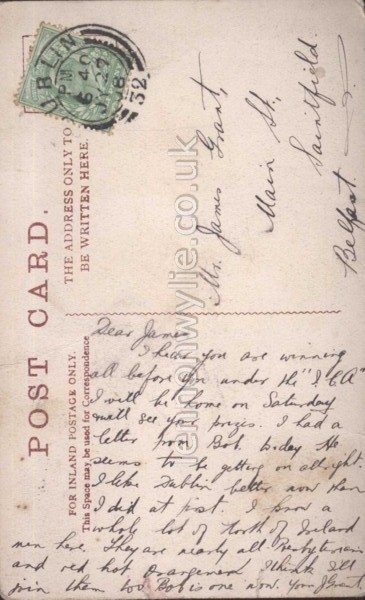 POST CARD.
THE ADDRESS ONLY TO
BE WRITTEN HERE.
FOR INLAND POSTAGE ONLY.
This Space may be used for Correspondence
DUBLIN
6 40 PM
27
08
32
Mr. James Grant,
Main St.,
Saintfield.
Belfast.
Dear James
I hear you are winning
all before you under the
I will be home on Saturday
will see your prizes. I had a
letter from Bob today He
seems to be getting on allright.
I like Dublin better now than
I did at first. I know a
whole lot of North of Ireland
men here. They are nearly all Presbyterians
and red hot Orangemen I think I'll
join them too Bob is one now. Your J Grant.
simonwylie.co.uk